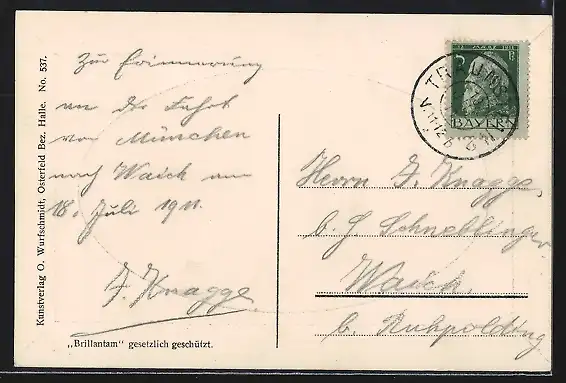 Zur Erinnerung
an die Fahrt
von München
nach Waich am
18. Juli 1911.
F. Knagge.
Herrn F. Knagge,
b. H. Schnellinger
Waich.
b. Ruhpolding
BAYERN
Kunstverlag O. Wurfschmidt, Osterfeld Bez. Halle. No. 537.
„Brillantam" gesetzlich geschützt.